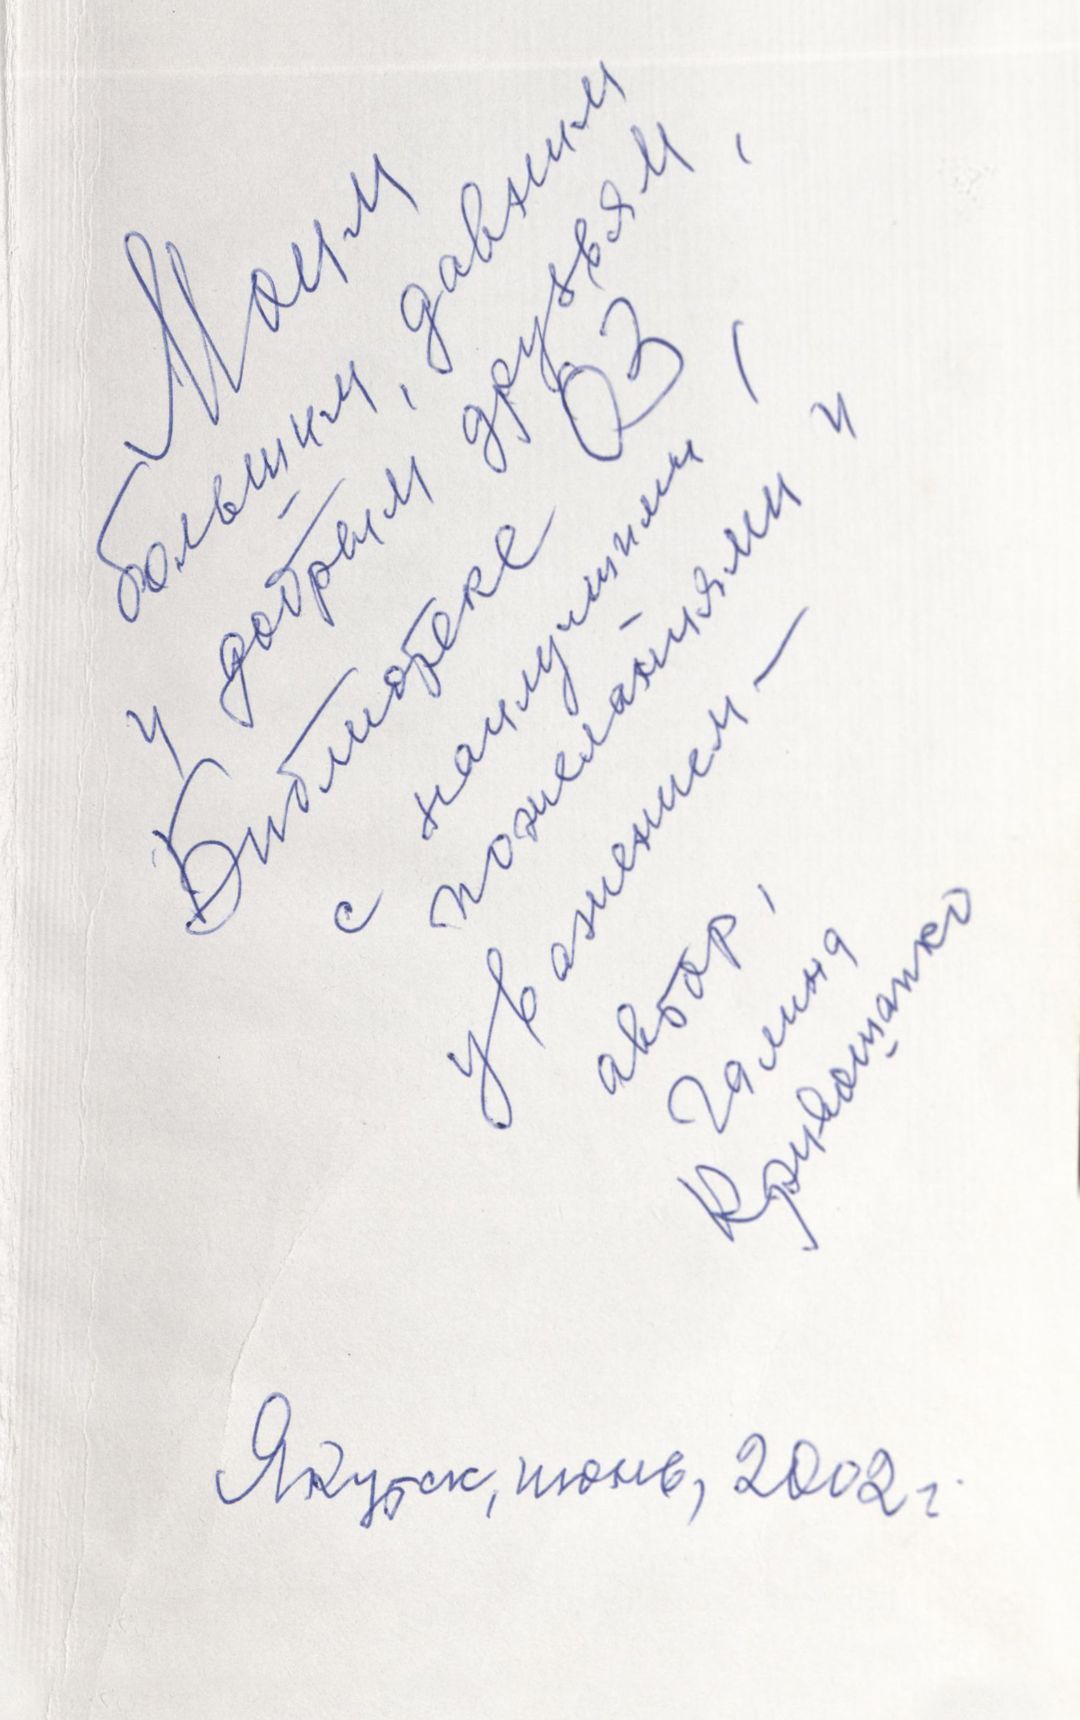 Моим
большим, давним
и добрым друзьям,
Библиотеке ОЗ,
с наилучшими
пожеланиями и
уважением —
автор,
Галина
Кривошапко
Якутск, июнь, 2002 г.